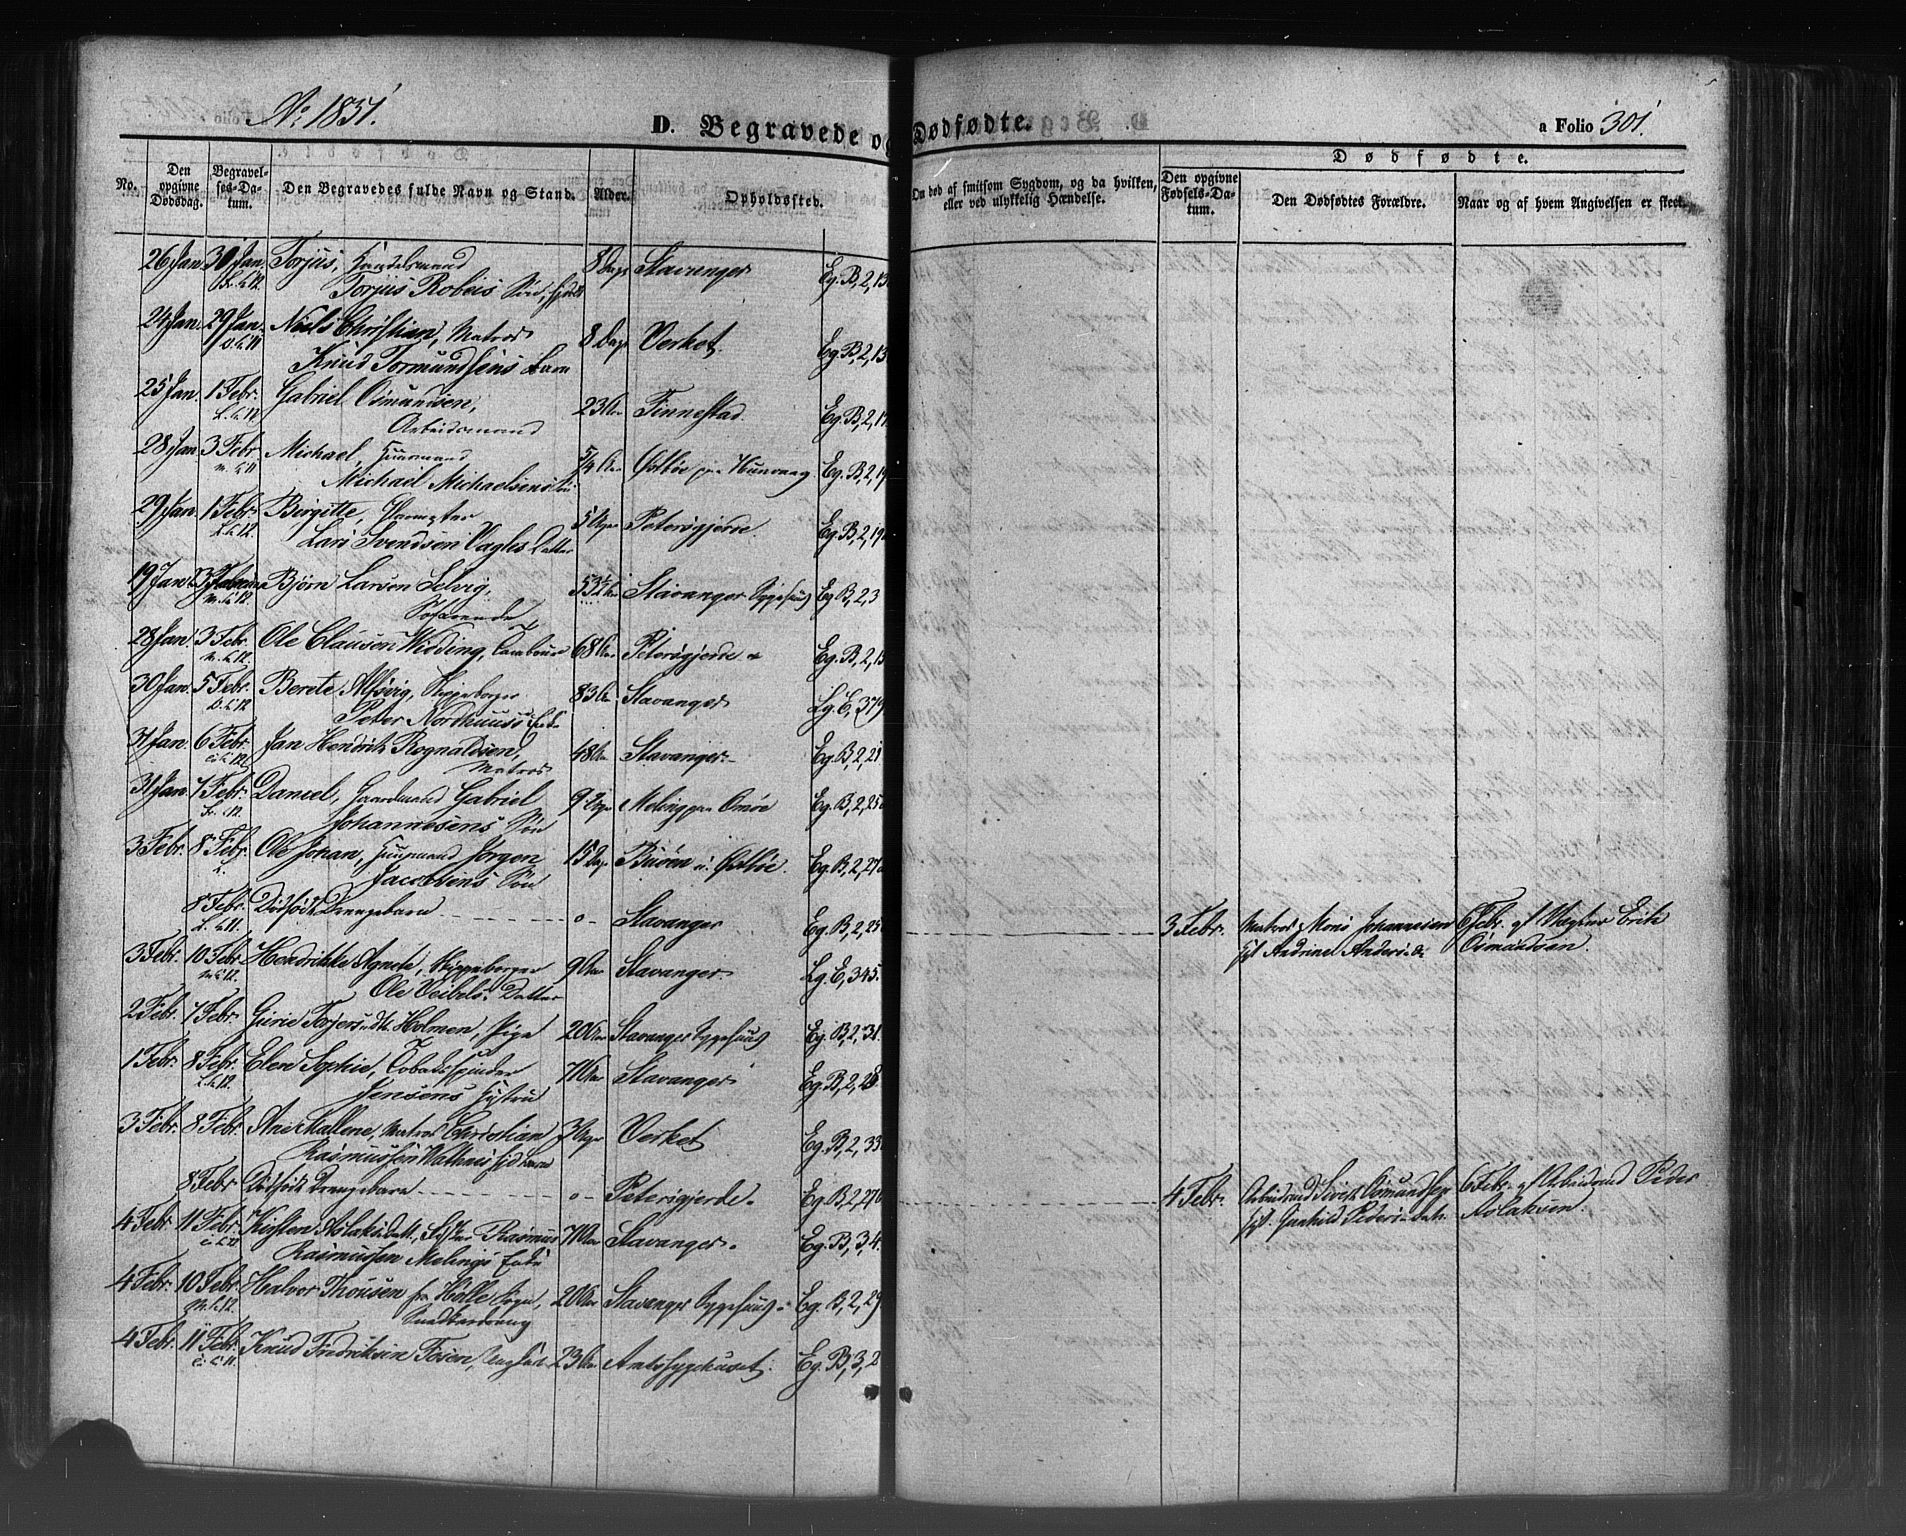 No 1851.
D. Begravede og Dødfødte.
a Folio 301.
No.
Den opgivne Dødsdag.
Begravelses-Datum.
Den Begravedes fulde Navn og Stand.
Alder.
Opholdssted.
Om død af smitsom Sygdom, og da hvilken, eller ved ulykkelig Hændelse.
Dødfødte.
Den opgivne Fødsels-Datum.
Den Dødfødtes Forældre.
Naar og af hvem Angivelsen er skeet.
26 Jan. 30 Jan. Torjus, Handelsmand 8 Dage Stavanger Eg. B, 2, 13
Torjus Søn,
24 Jan. 29 Jan. Niels Christian, Matros 8 Dage Verket. Eg. B, 2, 13
Knud Tormundsens Barn
25 Jan. 1 Febr. Gabriel Osmundsen, 23 Aar Finnestad Eg. B, 2,
Arbeidsmand
28 Jan. 3 Febr. Michael, Huusmand 5/4 Aar Østbøe paa Hunvaag Eg. B, 2, 19
Michael Michaelsens Søn
29 Jan. 1 Febr. Birgitte, 5 Uger Petersgjerde. Eg. B, 2, 19
Lars Svendsen Vagles Datter
19 Jan. Bjørn Larsen Selvig, 53½ Aar Stavanger Sygehuus Eg. B, 2, 3
28 Jan. 3 Febr. Ole Clausen Widding, 68 Aar Petersgjerde Eg. B, 2, 15
30 Jan. 5 Febr. Berete Alfsvig, Skipsborger 83 Aar Stavanger Lg. E, 379
Peter Nordhuus's Enke
31 Jan. 6 Febr. Jan Hendrik Rognaldsen, 48 Aar Stavanger Eg. B, 2, 21
Matros
31 Jan. 7 Febr. Daneel, Gaardmand Gabriel 9 Uger Meling paa Omøe Eg. B, 2, 25
Johannesens Søn
3 Febr. 8 Febr. Ole Johan, Huusmand Jørgen 15 Dage Buøen u. Østbøe. Eg. B, 2, 27
Jacobsens Søn
8 Febr. Dødfødt Drengebarn 0 Stavanger Eg. B, 2, 25 3 Febr. Matros Mons Johannesen 6 Febr. af Vægter Erik
Andrine Andersd. Osmundsen.
3 Febr. 10 Febr. Hendrikke Agnete, Skipsborger 9 Aar Stavanger Lg. E, 345.
Ole Veibels Datter
2 Febr. 7 Febr. Gurie Torgersdtr Holmen, Pige 20 Aar Stavanger Sygehuus Eg. B, 2, 31.
1 Febr. 8 Febr. Elen Sophie, Tobaksspinder 71 Aar Stavanger Eg. B, 2, 28.
Jensens Hustru
3 Febr. 8 Febr. Ane Mallene, Matros Christian 3 Uger Verket Eg. B, 2, 33
Rasmussen Barn
8 Febr. Dødfødt Drengebarn 0 Petersgjerde. Eg. B, 2, 27 4 Febr. Arbeidsmd Sivert Osmundsen 6 Febr. af Arbeidsmd Peder
Gunhild Pedersdatr. Aslaksen.
4 Febr. 11 Febr. Kirsten Aslaksdatt., Fisker Rasmus 71 Aar Stavanger. Eg. B, 3, 4.
Rasmussen Melings Enke
4 Febr. 10 Febr. Halvor Thorsen fra Holle Sogn, 20 Aar Stavanger Sygehuus Eg. B, 2, 29
4 Febr. 11 Febr. Knud Fredriksen Fosen, 23 Aar Amtssygehuset. Eg. B, 3, 2